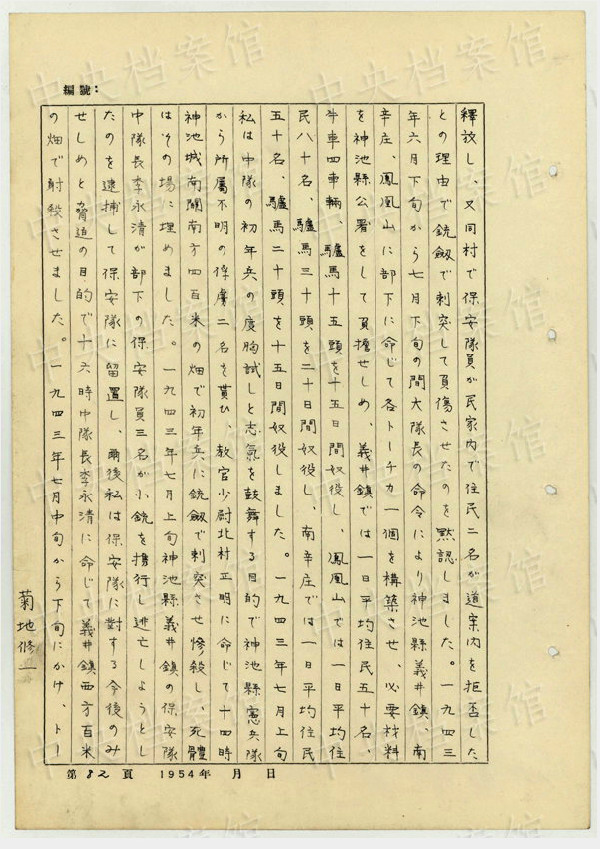 編號：
釋放し、又同村で保安隊員が民家内で住民二名が道案内を拒否した
との理由で銃劔で刺突して負傷させたのを黙認しました。一九四三
年六月下旬から七月下旬の間大隊長の命令により神池縣義井鎮、南
辛庄、鳳凰山に部下に命じて各トーチカ一個を構築させ、必要材料
を神池縣公署をして負擔せしめ、義井鎮では一日平均住民五十名、
牛車四車輛、驢馬十五頭を十五日間奴役し、鳳凰山では一日平均住
民八十名、驢馬三十頭を二十日間奴役し、南辛庄では一日平均住民
五十名、驢馬二十頭を十五日間奴役しました。一九四三年七月上旬
私は中隊の初年兵の度胸試しと志氣を鼓舞する目的で神池縣憲兵隊
から所屬不明の俘虜二名を貰ひ、教官少尉北村正明に命じて十四時
神池城南關南方四百米の畑で初年兵に銃劔で刺突させ惨殺し、死體
はその場に埋めました。一九四三年七月上旬神池縣義井鎮の保安隊
中隊長李永清が部下の保安隊員三名が小銃を携行し逃亡しようとし
たのを逮捕して保安隊に留置し、爾後私は保安隊に對する今後のみ
せしめと脅迫の目的で十六時中隊長李永清に命じて義井鎮西方百米
の畑で射殺させました。一九四三年七月中旬から下旬にかけ、トー
菊地修一
第82頁 1954年 月 日
中央档案馆